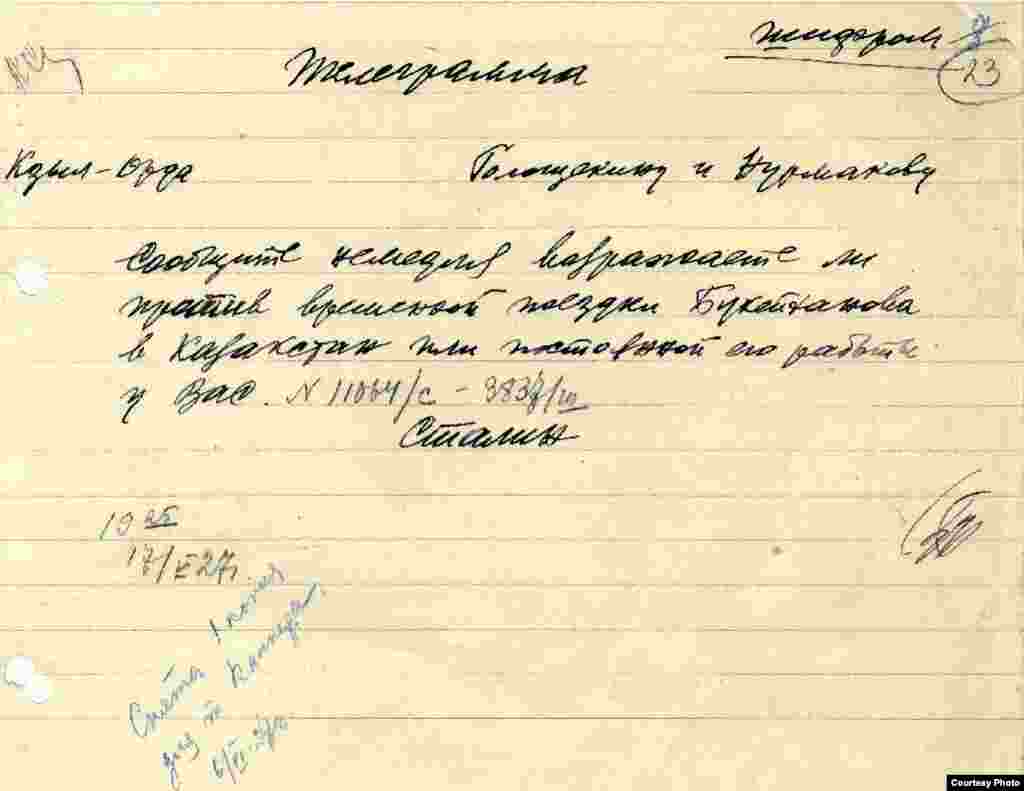 шифром
23
Телеграмма
Кзыл-Орда Голощекину и Нурмакову
Сообщите немедля возражаете ли
против временной поездки Букейханова
в Казакстан или постоянной его работы
у Вас. N 11064/с
Сталин
19 25
17/V 27
Снята 1 копия
для т.
6/VI-27г.
Courtesy Photo